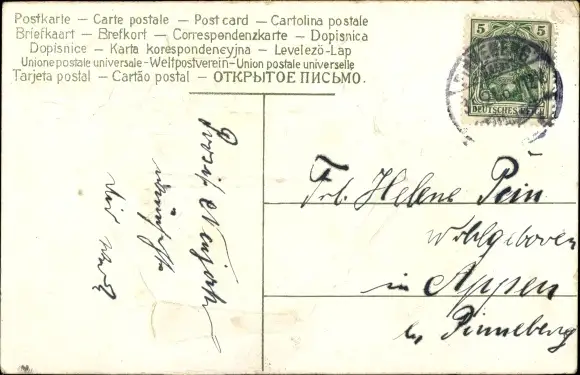 Postkarte – Carte postale – Post card – Cartolina postale
Briefkaart – Brefkort – Correspondenzkarte – Dopisnica
Dopisnice – Karta korespondencyjna – Levelezö-Lap
Unione postale universale – Weltpostverein – Union postale universelle
Tarjeta postal – Cartão postal – ОТКРЫТОЕ ПИСЬМО.
5 5
DEUTSCHES REICH
Prosit Neujahr
wünscht
Frl. Helene Pein
Wohlgeboren
in Appen
by Pinneberg